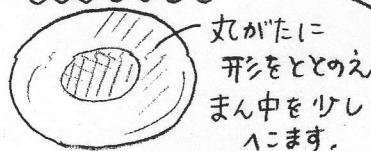 丸がたに
形をととのえ
まん中を少し
へこます。